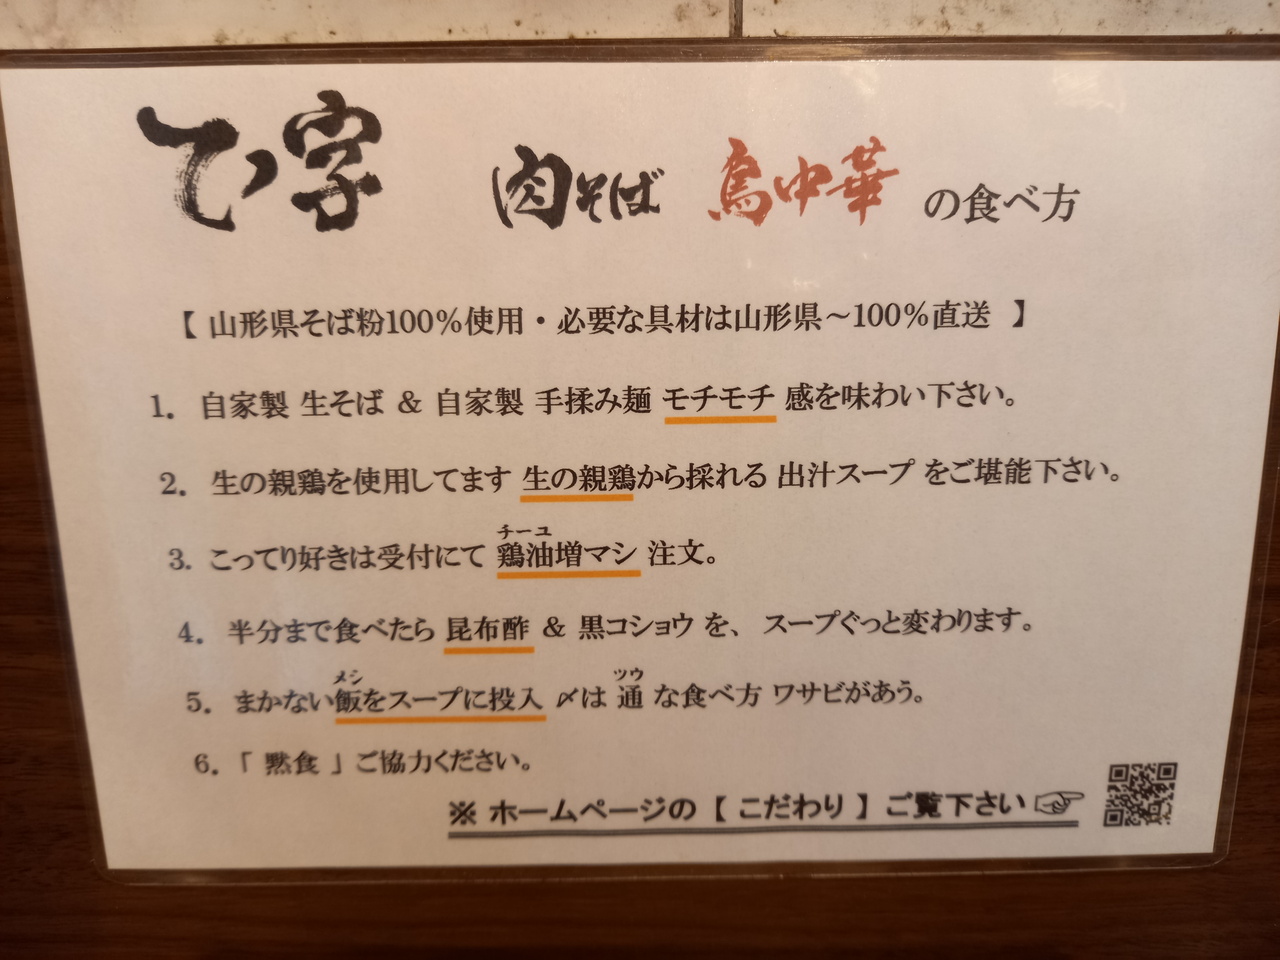 てひ字 肉そば 鳥中華 の食べ方
【 山形県そば粉100%使用・必要な具材は山形県～100%直送 】
1. 自家製 生そば & 自家製 手揉み麺 モチモチ 感を味わい下さい。
2. 生の親鶏を使用してます 生の親鶏から採れる 出汁スープ をご堪能下さい。
チーユ
3. こってり好きは受付にて 鶏油増マシ 注文。
4. 半分まで食べたら 昆布酢 & 黒コショウ を、 スープぐっと変わります。
メシ ツウ
5. まかない飯をスープに投入 〆は 通 な食べ方 ワサビがあう。
6. 「 黙食 」ご協力ください。
※ ホームページの【 こだわり 】ご覧下さい☞